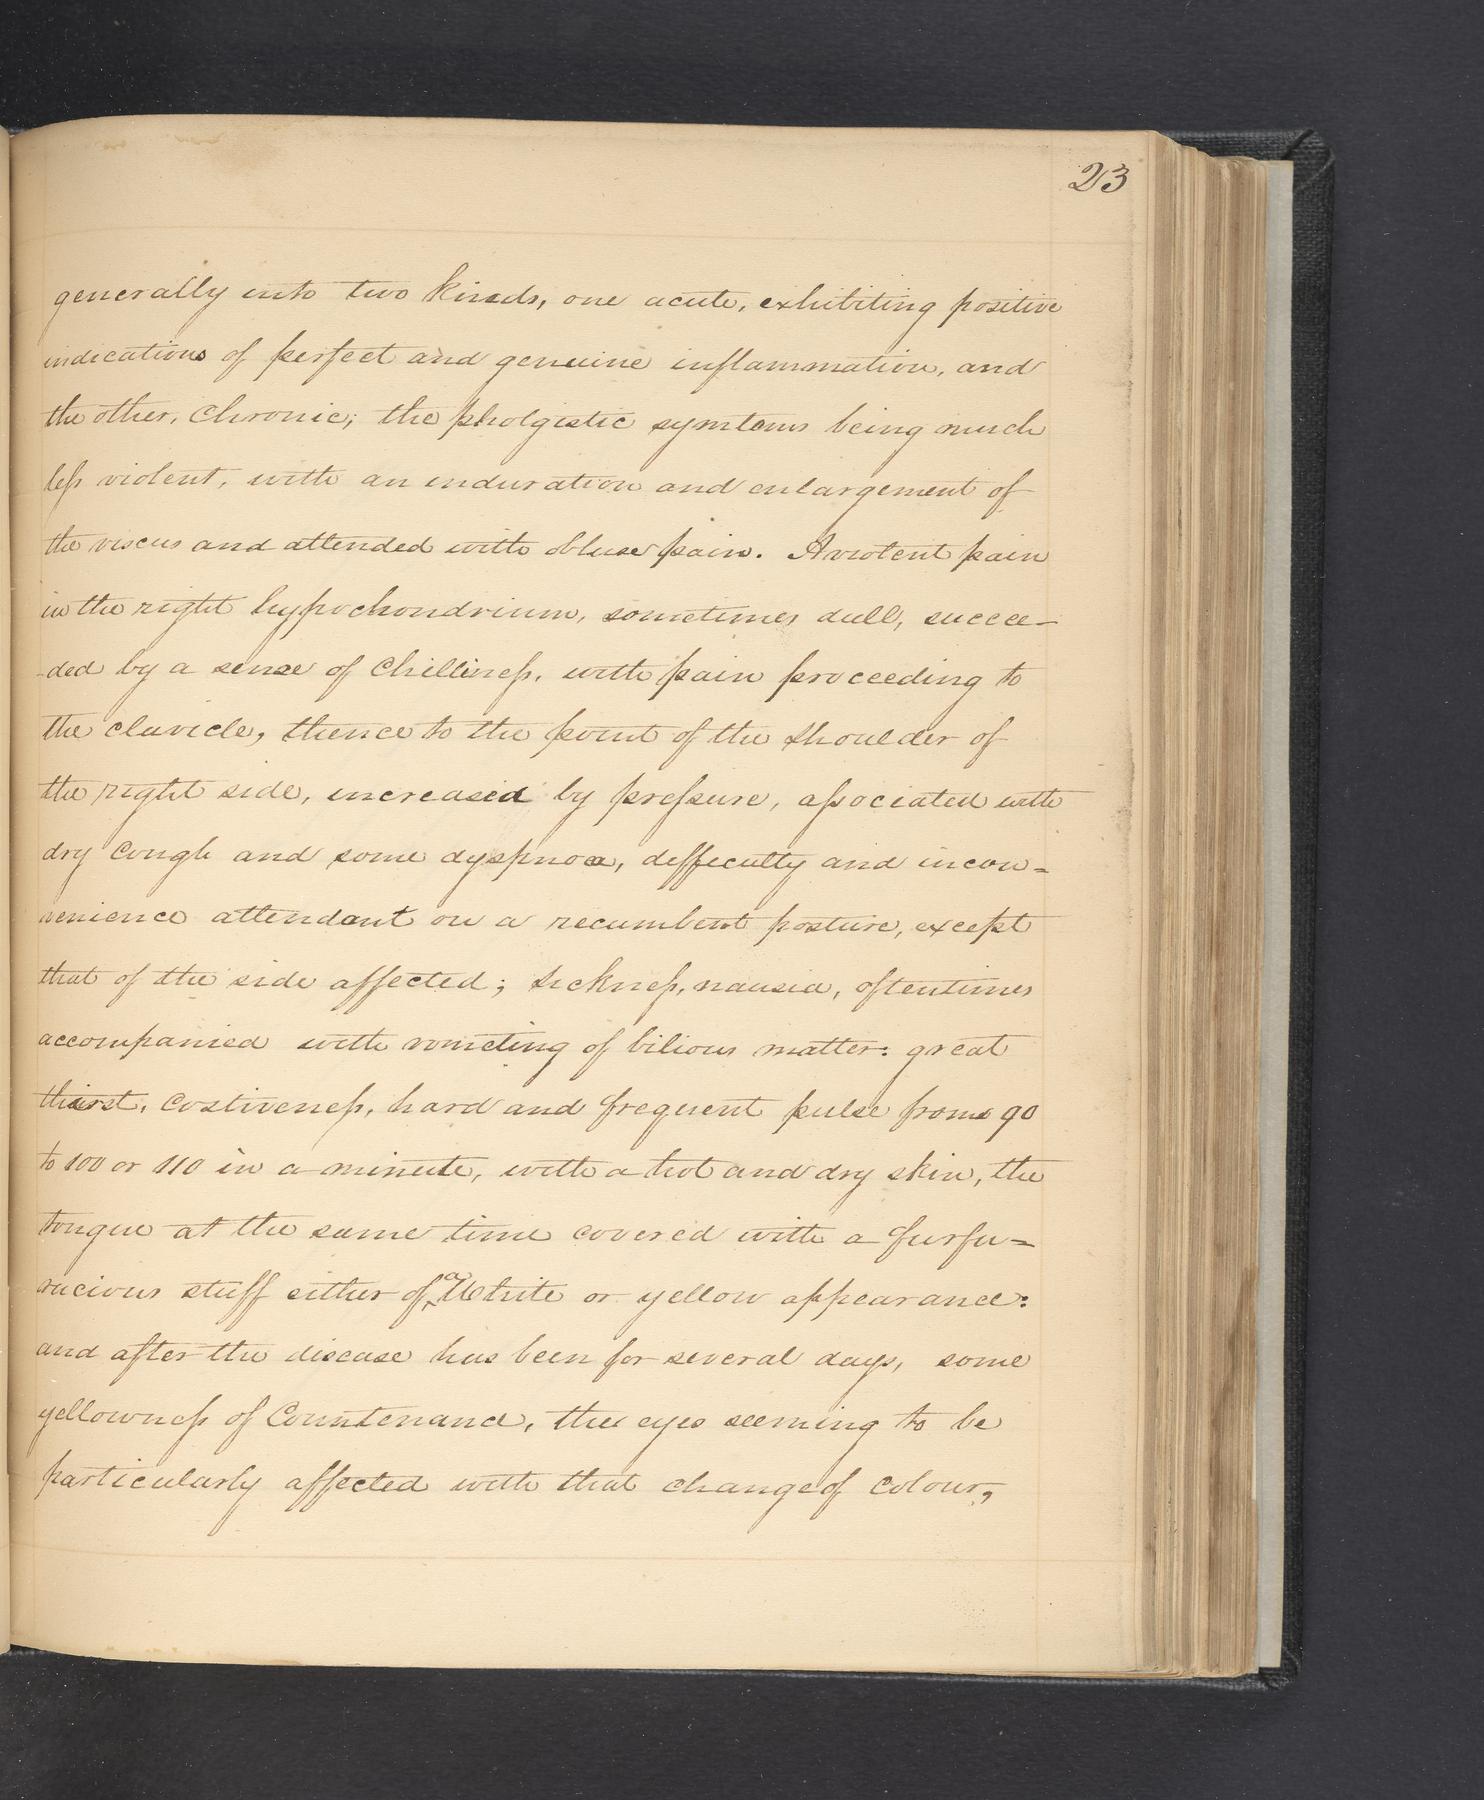 23
generally into two kinds, one acute, exhibiting positive
indications of perfect and genuine inflammation, and
the other, Chronic; the pholgistic symtoms being much
less violent, with an induration and enlargement of
the viscus and attended with obtuse pain. A violent pain
in the right hypochondrium, sometimes dull, succee-
-ded by a sense of Chilliness, with pain proceeding to
the clavicle, thence to the point of the shoulder of
the right side, increased by pressure, associated with
dry Cough and some dyspnoea, difficulty and incon=
venience attendant on a recumbent posture, except
that of the side affected; sickness, nausia, oftentimes
accompanied with vomiting of bilious matter: great
thirst, costiveness, hard and frequent pulse from 90
to 100 or 110 in a minute, with a hot and dry skin, the
tongue at the same time covered with a furfu=
racious stuff either of a White or yellow appearance:
and after the disease has been for several days, some
yellowness of Countenance, the eyes seeming to be
particularly affected with that change of colour,